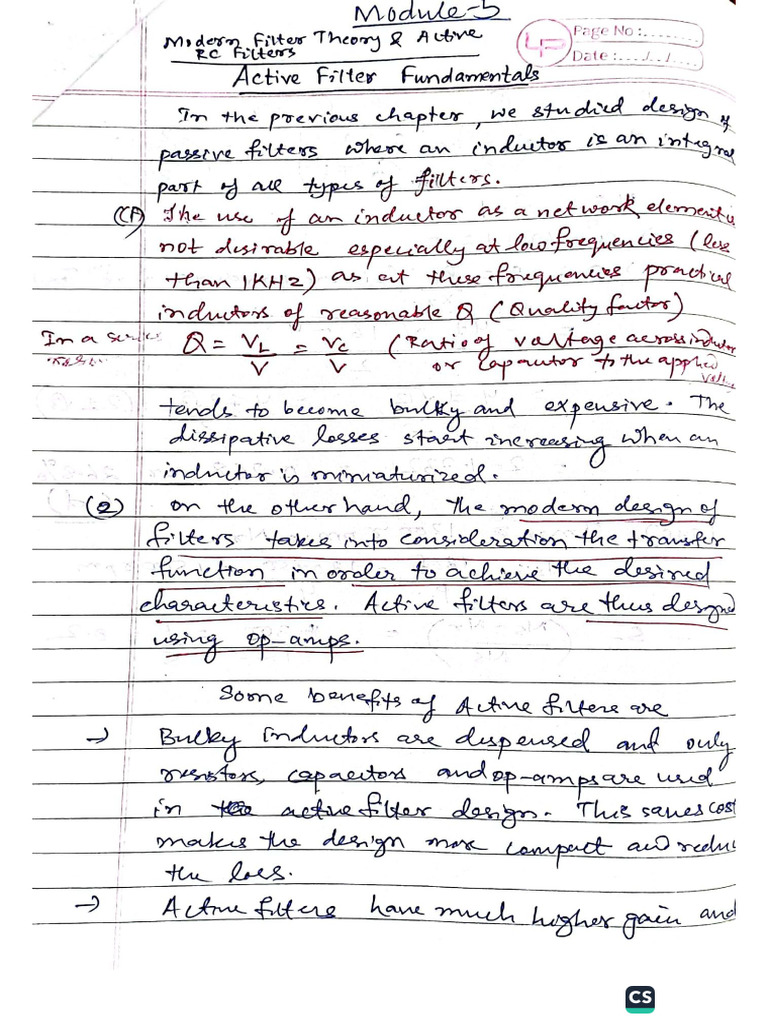 Module-5
Modern Filter Theory & Active
RC Filters
Page No :........
Date :..../../....
Active Filter Fundamentals
In the previous chapter, we studied design of
passive filters where an inductor is an integral
part of all types of filters.
The use of an inductor as a network element is
not desirable especially at low frequencies (less
than 1KHz) as at these frequencies practical
inductors of reasonable Q (Quality factor)
In a series
Q = VL/V = VC/V (Ratio of voltage across inductor
or capacitor to the applied
tends to become bulky and expensive. The
dissipative losses start increasing when an
inductor is miniaturized.
(2) on the other hand, the modern design of
filters takes into consideration the transfer
function in order to achieve the desired
characteristics. Active filters are thus designed
using op-amps.
Some benefits of Active filters are
→ Bulky inductors are dispensed and only
resistors, capacitors and op-amps are used
in active filter design. This saves cost
makes the design more compact and reduc
the loss.
→ Active filters have much higher gain and
CS